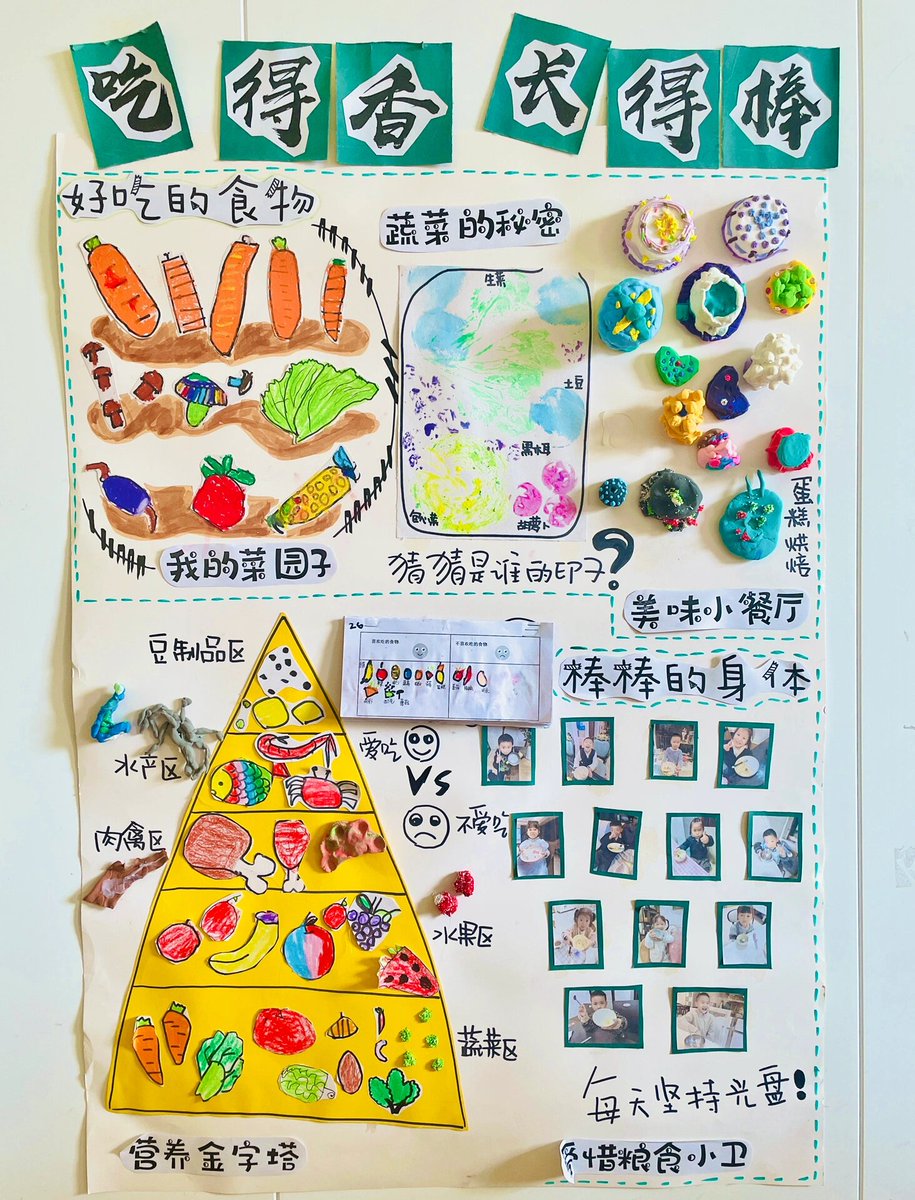 吃得香 长得棒
好吃的食物
蔬菜的秘密
生菜
土豆
黑木耳
包心菜
胡萝卜
我的菜园子
猜猜是谁的印子?
蛋糕烘焙
美味小餐厅
豆制品区
水产区
肉禽区
水果区
蔬菜区
营养金字塔
26
喜欢吃的食物
不喜欢吃的食物
爱吃
VS
不爱吃
棒棒的身体
每天坚持光盘!
爱惜粮食小卫